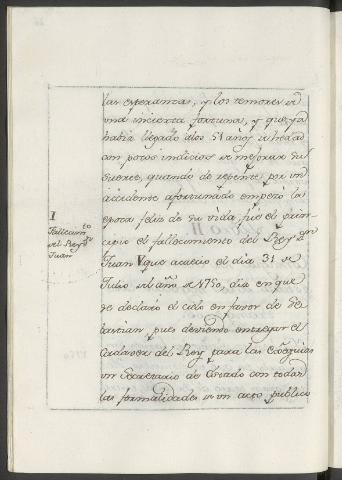 las esperanzas, y los temores de
una incierta fortuna, y que ya
habia llegado alos 51 años de hedad
con pocos indicios de mejorar su
suerte, quando de repente por un
accidente afortunado empezó la
epoca feliz de su vida, fué el prin-
cipio el fallecimiento del Rey Dn
Juan V que acaeció el dia 31 de
Julio del año de 1750, dia en que
se declaró el cielo en favor de Se-
bastian, pues deviendo entregar el
Cadaver del Rey para las Exequias
un Secretario de Estado con todas
las formalidades de un acto publico
I
Fallecimto
del Rey Dn
Juan